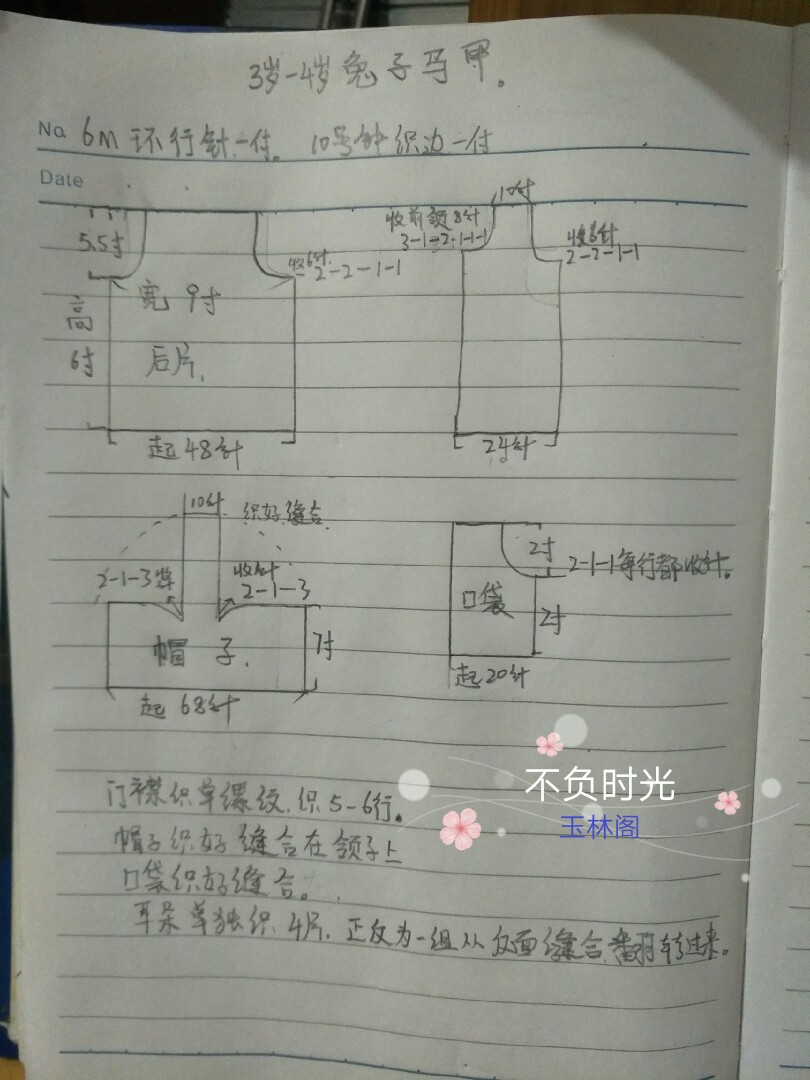 3岁-4岁兔子马甲。
No. 6M 环行针一付。 10号针织边一付
Date
10针
收前领8针
3-1-2-1-1-1
5.5寸
收6针
2-2-1-1
2-2-1-1
宽 9寸
高
6寸
后片.
起48针
24针
10针
织好缝合
2寸
2-1-1每行都收针。
2-1-3
收针
2-1-3
口袋
帽子.
7寸
2寸
起20针
起68针
不负时光
玉林阁
门襟织单螺纹.织5-6行。
帽子织好缝合在领子上
口袋织好缝合。
耳朵单独织.4片.正反为一组从反面缝合.翻转过来。